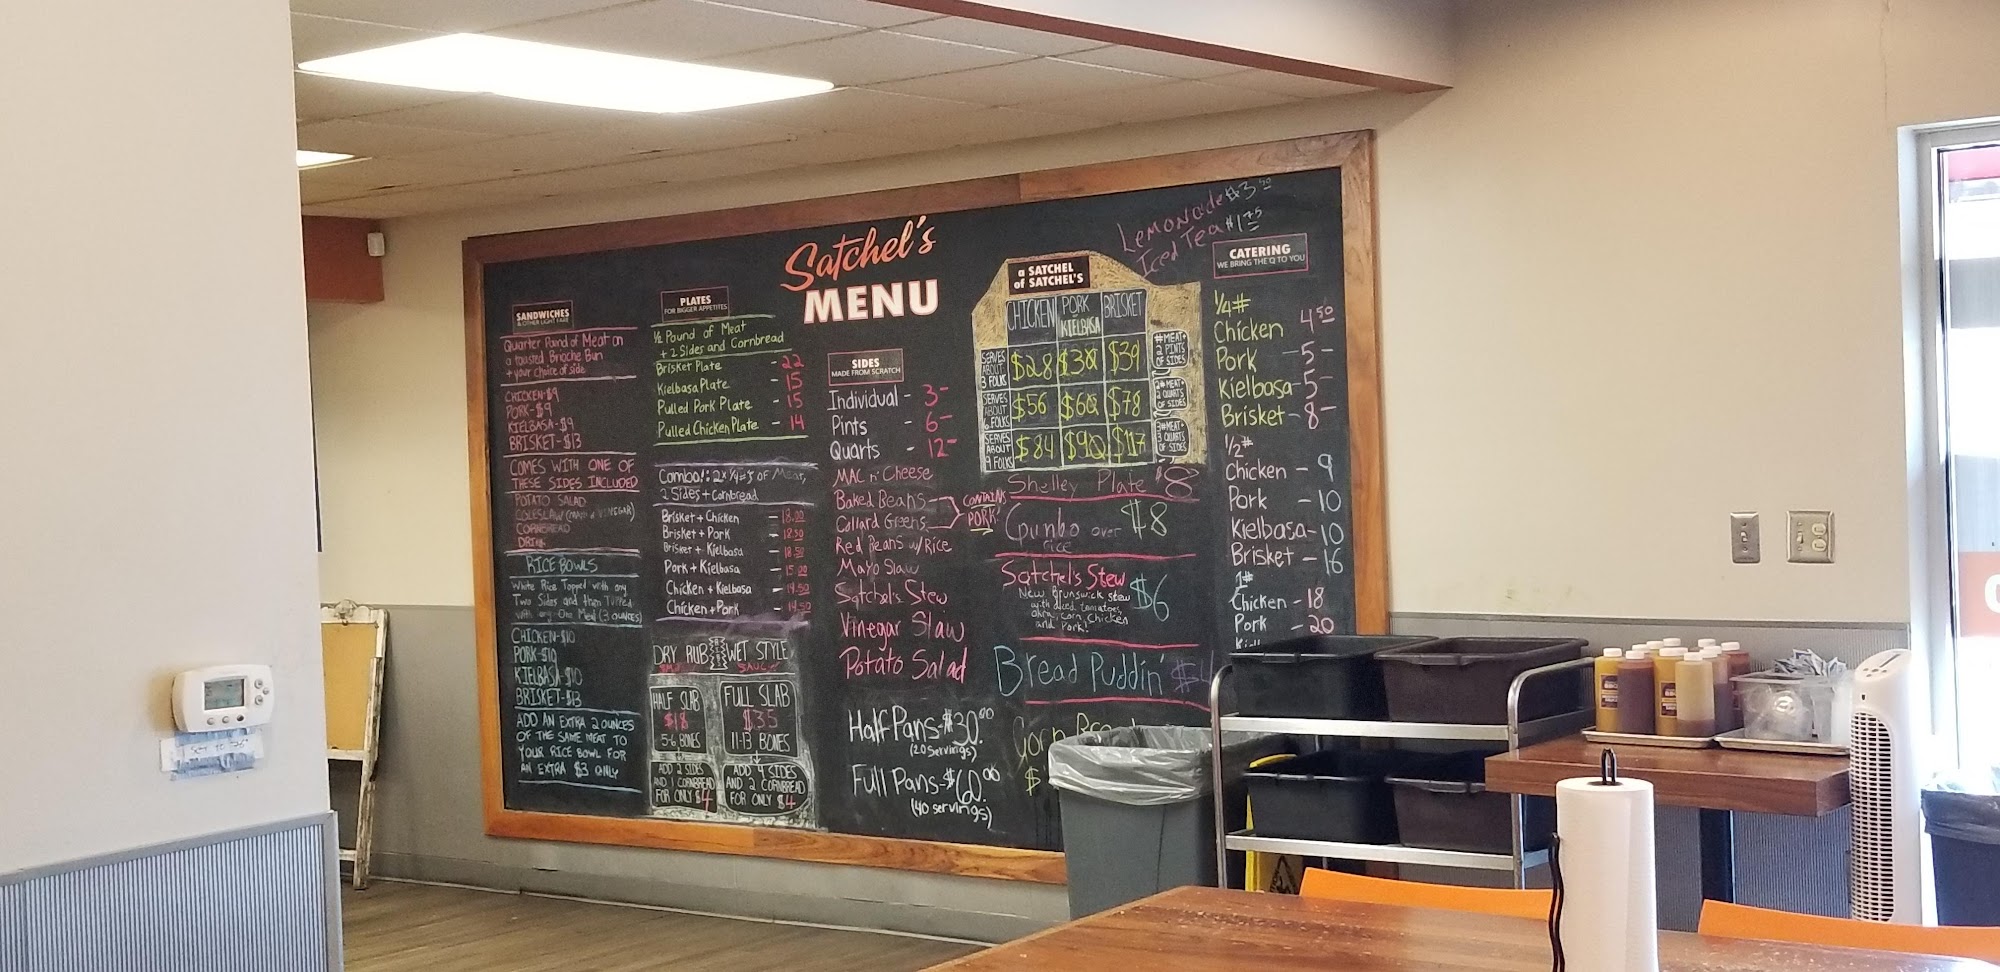 Satchel's
MENU
SANDWICHES
& OTHER LIGHT FARE
Quarter Pound of Meat on
a toasted Brioche Bun
+ your choice of side
CHICKEN-$9
PORK-$9
KIELBASA-$9
BRISKET-$13
COMES WITH ONE OF
THESE SIDES INCLUDED
POTATO SALAD
COLESLAW (MAYO or VINEGAR)
CORNBREAD
DRINK
RICE BOWLS
White Rice Topped with any
Two Sides and then Topped
with any One Meat (3 ounces)
CHICKEN-$10
PORK-$10
KIELBASA-$10
BRISKET-$13
ADD AN EXTRA 2 OUNCES
OF THE SAME MEAT TO
YOUR RICE BOWL FOR
AN EXTRA $3 ONLY
PLATES
FOR BIGGER APPETITES
½ Pound of Meat
+ 2 Sides and Cornbread
Brisket Plate - 22
Kielbasa Plate - 15
Pulled Pork Plate - 15
Pulled Chicken Plate - 14
Combo!: 2x ¼#s of Meat,
2 Sides + Cornbread
Brisket + Chicken - 18.00
Brisket + Pork - 18.50
Brisket + Kielbasa - 18.50
Pork + Kielbasa - 15.00
Chicken + Kielbasa - 14.50
Chicken + Pork - 14.50
DRY RUB
WET STYLE
HALF SLAB
$18
5-6 BONES
ADD 2 SIDES
AND 1 CORNBREAD
FOR ONLY $4
FULL SLAB
$35
11-13 BONES
ADD 4 SIDES
AND 2 CORNBREAD
FOR ONLY $4
SIDES
MADE FROM SCRATCH
Individual - 3-
Pints - 6-
Quarts - 12-
MAC n' Cheese
Baked Beans
Collard Greens
CONTAINS
PORK!
Red Beans w/Rice
Mayo Slaw
Satchel's Stew
Vinegar Slaw
Potato Salad
Half Pans-$30.00
(20 Servings)
Full Pans-$60.00
(40 servings)
Lemonade $3.50
Iced Tea $1.75
a SATCHEL
of SATCHEL'S
CHICKEN PORK KIELBASA BRISKET
SERVES ABOUT 3 FOLKS $28 $30 $39 1# MEAT+ 2 PINTS OF SIDES
SERVES ABOUT 6 FOLKS $56 $60 $78 2# MEAT+ 2 QUARTS OF SIDES
SERVES ABOUT 9 FOLKS $84 $90 $117 3# MEAT+ 3 QUARTS OF SIDES
Shelley Plate $8
Gumbo over rice $8
Satchel's Stew $6
New Brunswick stew
with diced tomatoes,
okra, corn, Chicken
and Pork!
Bread Puddin'
Corn
$
CATERING
WE BRING THE Q TO YOU
1/4#
Chicken 4.50
Pork -5-
Kielbasa-5-
Brisket-8-
1/2#
Chicken - 9
Pork - 10
Kielbasa-10
Brisket - 16
1#
Chicken - 18
Pork - 20